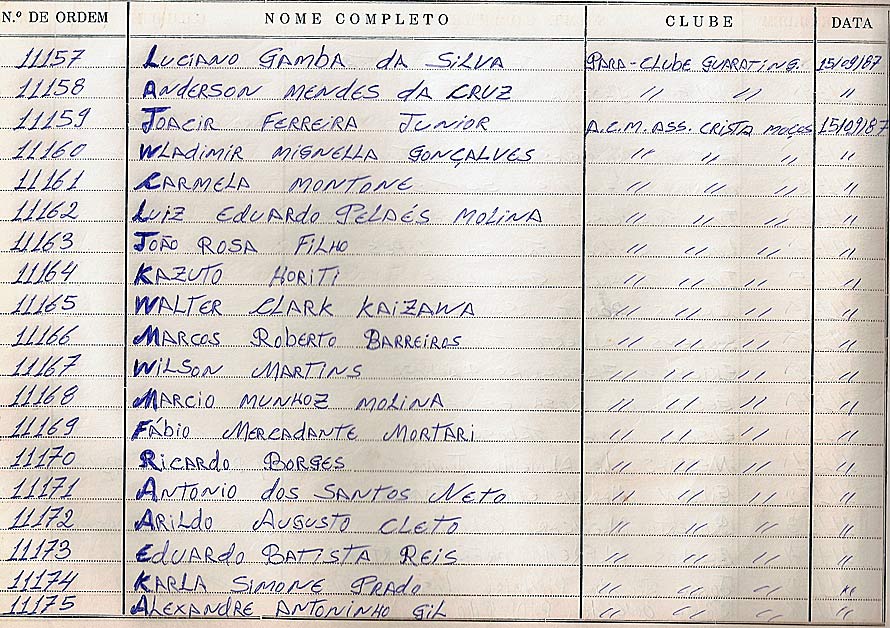 N.º DE ORDEM NOME COMPLETO CLUBE DATA
11157 LUCIANO GAMBA DA SILVA PARA-CLUBE GUARATING. 15/09/87
11158 ANDERSON MENDES DA CRUZ " " "
11159 JOACIR FERREIRA JUNIOR A.C.M. ASS. CRISTA MOÇOS 15/09/87
11160 WLADIMIR MIGNELLA GONÇALVES " " " "
11161 CARMELA MONTONE " " " "
11162 LUIZ EDUARDO PELAÉS MOLINA " " " "
11163 JOÃO ROSA FILHO " " " "
11164 KAZUTO HORITI " " " "
11165 WALTER CLARK KAIZAWA " " " "
11166 MARCOS ROBERTO BARREIROS " " " "
11167 WILSON MARTINS " " " "
11168 MARCIO MUNHOZ MOLINA " " " "
11169 FÁBIO MERCADANTE MORTARI " " " "
11170 RICARDO BORGES " " " "
11171 ANTONIO DOS SANTOS NETO " " " "
11172 ARILDO AUGUSTO CLETO " " " "
11173 EDUARDO BATISTA REIS " " " "
11174 KARLA SIMONE PRADO " " " "
11175 ALEXANDRE ANTONINHO GIL " " " "